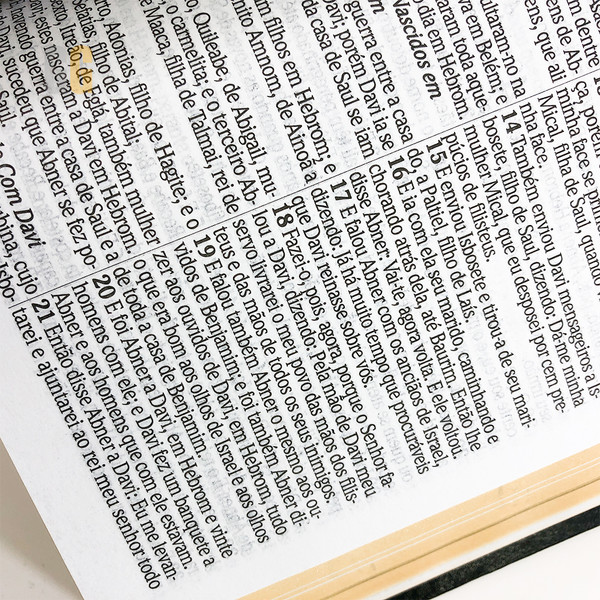 ens de Ab-
ens, que ali
utaram-no na
va em Belém; e
aram toda aque-
dia em Hebrom.
Nascidos em
guerra entre a casa
davi; porém Davi ia se
a casa de Saul se iam
filhos em Hebrom; e
Amnom, de Ainoã
Quileabe, de Abigail, mu-
o carmelita; e o terceiro Ab-
e Maaca, filha de Talmai, rei de
Adonias, filho de Hagite; e o
filho de Abital;
de Eglá, também mulher
a Davi em Hebrom.
guerra entre a casa de Saul e
Davi, sucedeu que Abner se fez po-
Saul.
Com Davi
cujo
minha face se
Mical, filha de Saul, quando
nha face.
14 Também enviou Davi mensageiros a Is-
bosete, filho de Saul, dizendo: Dá-me minha
mulher Mical, que eu desposei por cem pre-
púcios de filisteus.
15 E enviou Isbosete e tirou-a de seu mari-
do, a Paltiel, filho de Laís.
16 E ia com ela seu marido, caminhando e
chorando atrás dela, até Baurim. Então lhe
disse Abner: Vai-te, agora volta. E ele voltou.
17 E falou Abner com os anciãos de Israel,
dizendo: Já há muito tempo que procuráveis
que Davi reinasse sobre vós.
18 Fazei-o, pois, agora, porque o Senhor fa-
lou a Davi, dizendo: Pela mão de Davi meu
servo livrarei o meu povo das mãos dos filis-
teus e das mãos de todos os seus inimigos.
19 E falou também Abner o mesmo aos ou-
vidos de Benjamim; e foi também Abner di-
zer aos ouvidos de Davi, em Hebrom, tudo
o que era bom aos olhos de Israel e aos olhos
de toda a casa de Benjamim.
20 E foi Abner a Davi, em Hebrom, e vinte
homens com ele; e Davi fez um banquete a
Abner e aos homens que com ele estavam.
21 Então disse Abner a Davi: Eu me levan-
tarei e ajuntarei ao rei meu senhor todo